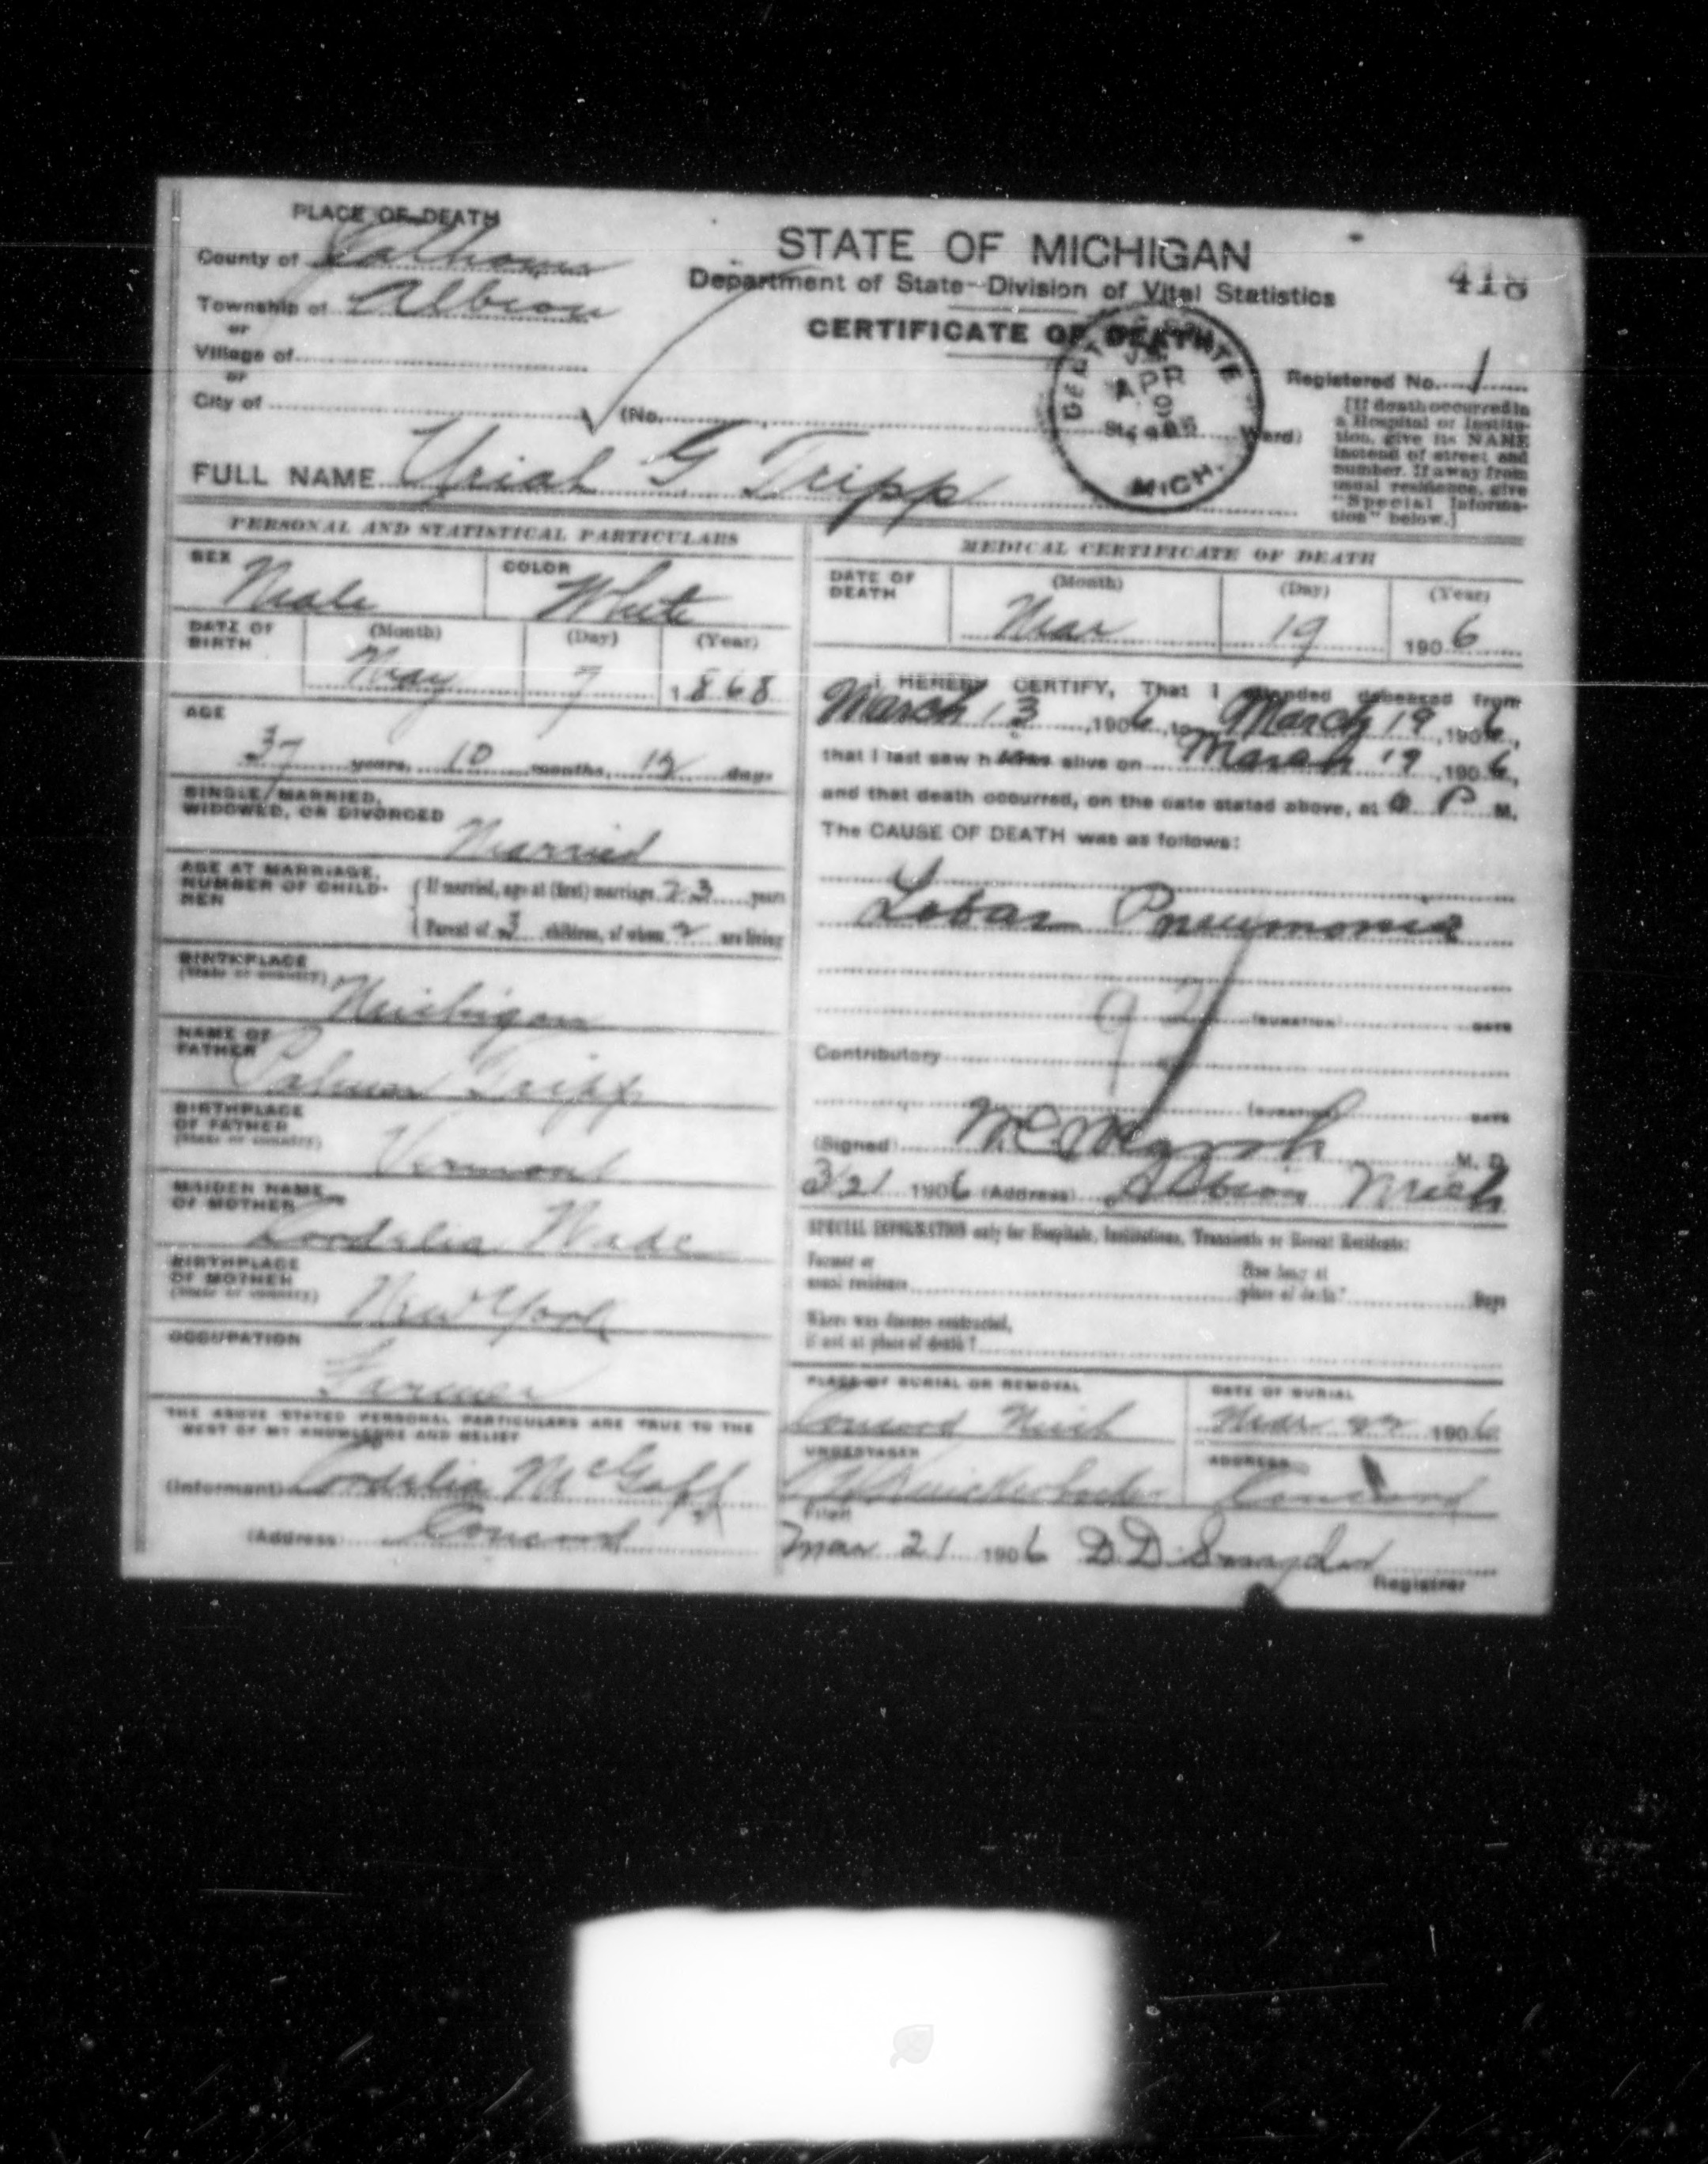 PLACE OF DEATH
County of Calhoun
Township of Albion
or
Village of
or
City of
STATE OF MICHIGAN
Department of State—Division of Vital Statistics
CERTIFICATE OF DEATH
418
Registered No. 1
(No. St. Ward)
[If death occurred in
a Hospital or Institu-
tion, give its NAME
instead of street and
number. If away from
usual residence, give
"Special Informa-
tion" below.]
APR
9
MICH.
FULL NAME Uriah G Tripp
PERSONAL AND STATISTICAL PARTICULARS
SEX Male
COLOR White
DATE OF BIRTH
(Month) (Day) (Year)
May 7 1868
AGE
37 years, 10 months, 12 days
SINGLE, MARRIED,
WIDOWED, OR DIVORCED
Married
AGE AT MARRIAGE,
NUMBER OF CHILD-
REN
If married, age at (first) marriage 23 years
Parent of 3 children, of whom 2 are living
BIRTHPLACE
(State or country)
Michigan
NAME OF
FATHER
Tripp
BIRTHPLACE
OF FATHER
(State or country)
Vermont
MAIDEN NAME
OF MOTHER
Cordelia Wade
BIRTHPLACE
OF MOTHER
(State or country)
New York
OCCUPATION
Farmer
THE ABOVE STATED PERSONAL PARTICULARS ARE TRUE TO THE
BEST OF MY KNOWLEDGE AND BELIEF
(Informant) Cordelia McGaff
(Address) Concord
MEDICAL CERTIFICATE OF DEATH
DATE OF DEATH
(Month) (Day) (Year)
Mar 19 1906
I HEREBY CERTIFY, That I attended deceased from
March 13, 1906, to March 19, 1906,
that I last saw him alive on March 19, 1906,
and that death occurred, on the date stated above, at 6 P M.
The CAUSE OF DEATH was as follows:
Lobar Pneumonia
92
(DURATION) DAYS
Contributory
(DURATION) DAYS
(Signed) Marsh M. D.
3/21 1906 (Address) Albion Mich
SPECIAL INFORMATION only for Hospitals, Institutions, Transients or Recent Residents:
Former or
usual residence
How long at
place of death? Days
Where was disease contracted,
if not at place of death?
PLACE OF BURIAL OR REMOVAL
Concord Mich
DATE OF BURIAL
Mar 22 1906
UNDERTAKER
Knickerbocker
ADDRESS
Concord
Filed
Mar 21 1906 D D
Registrar